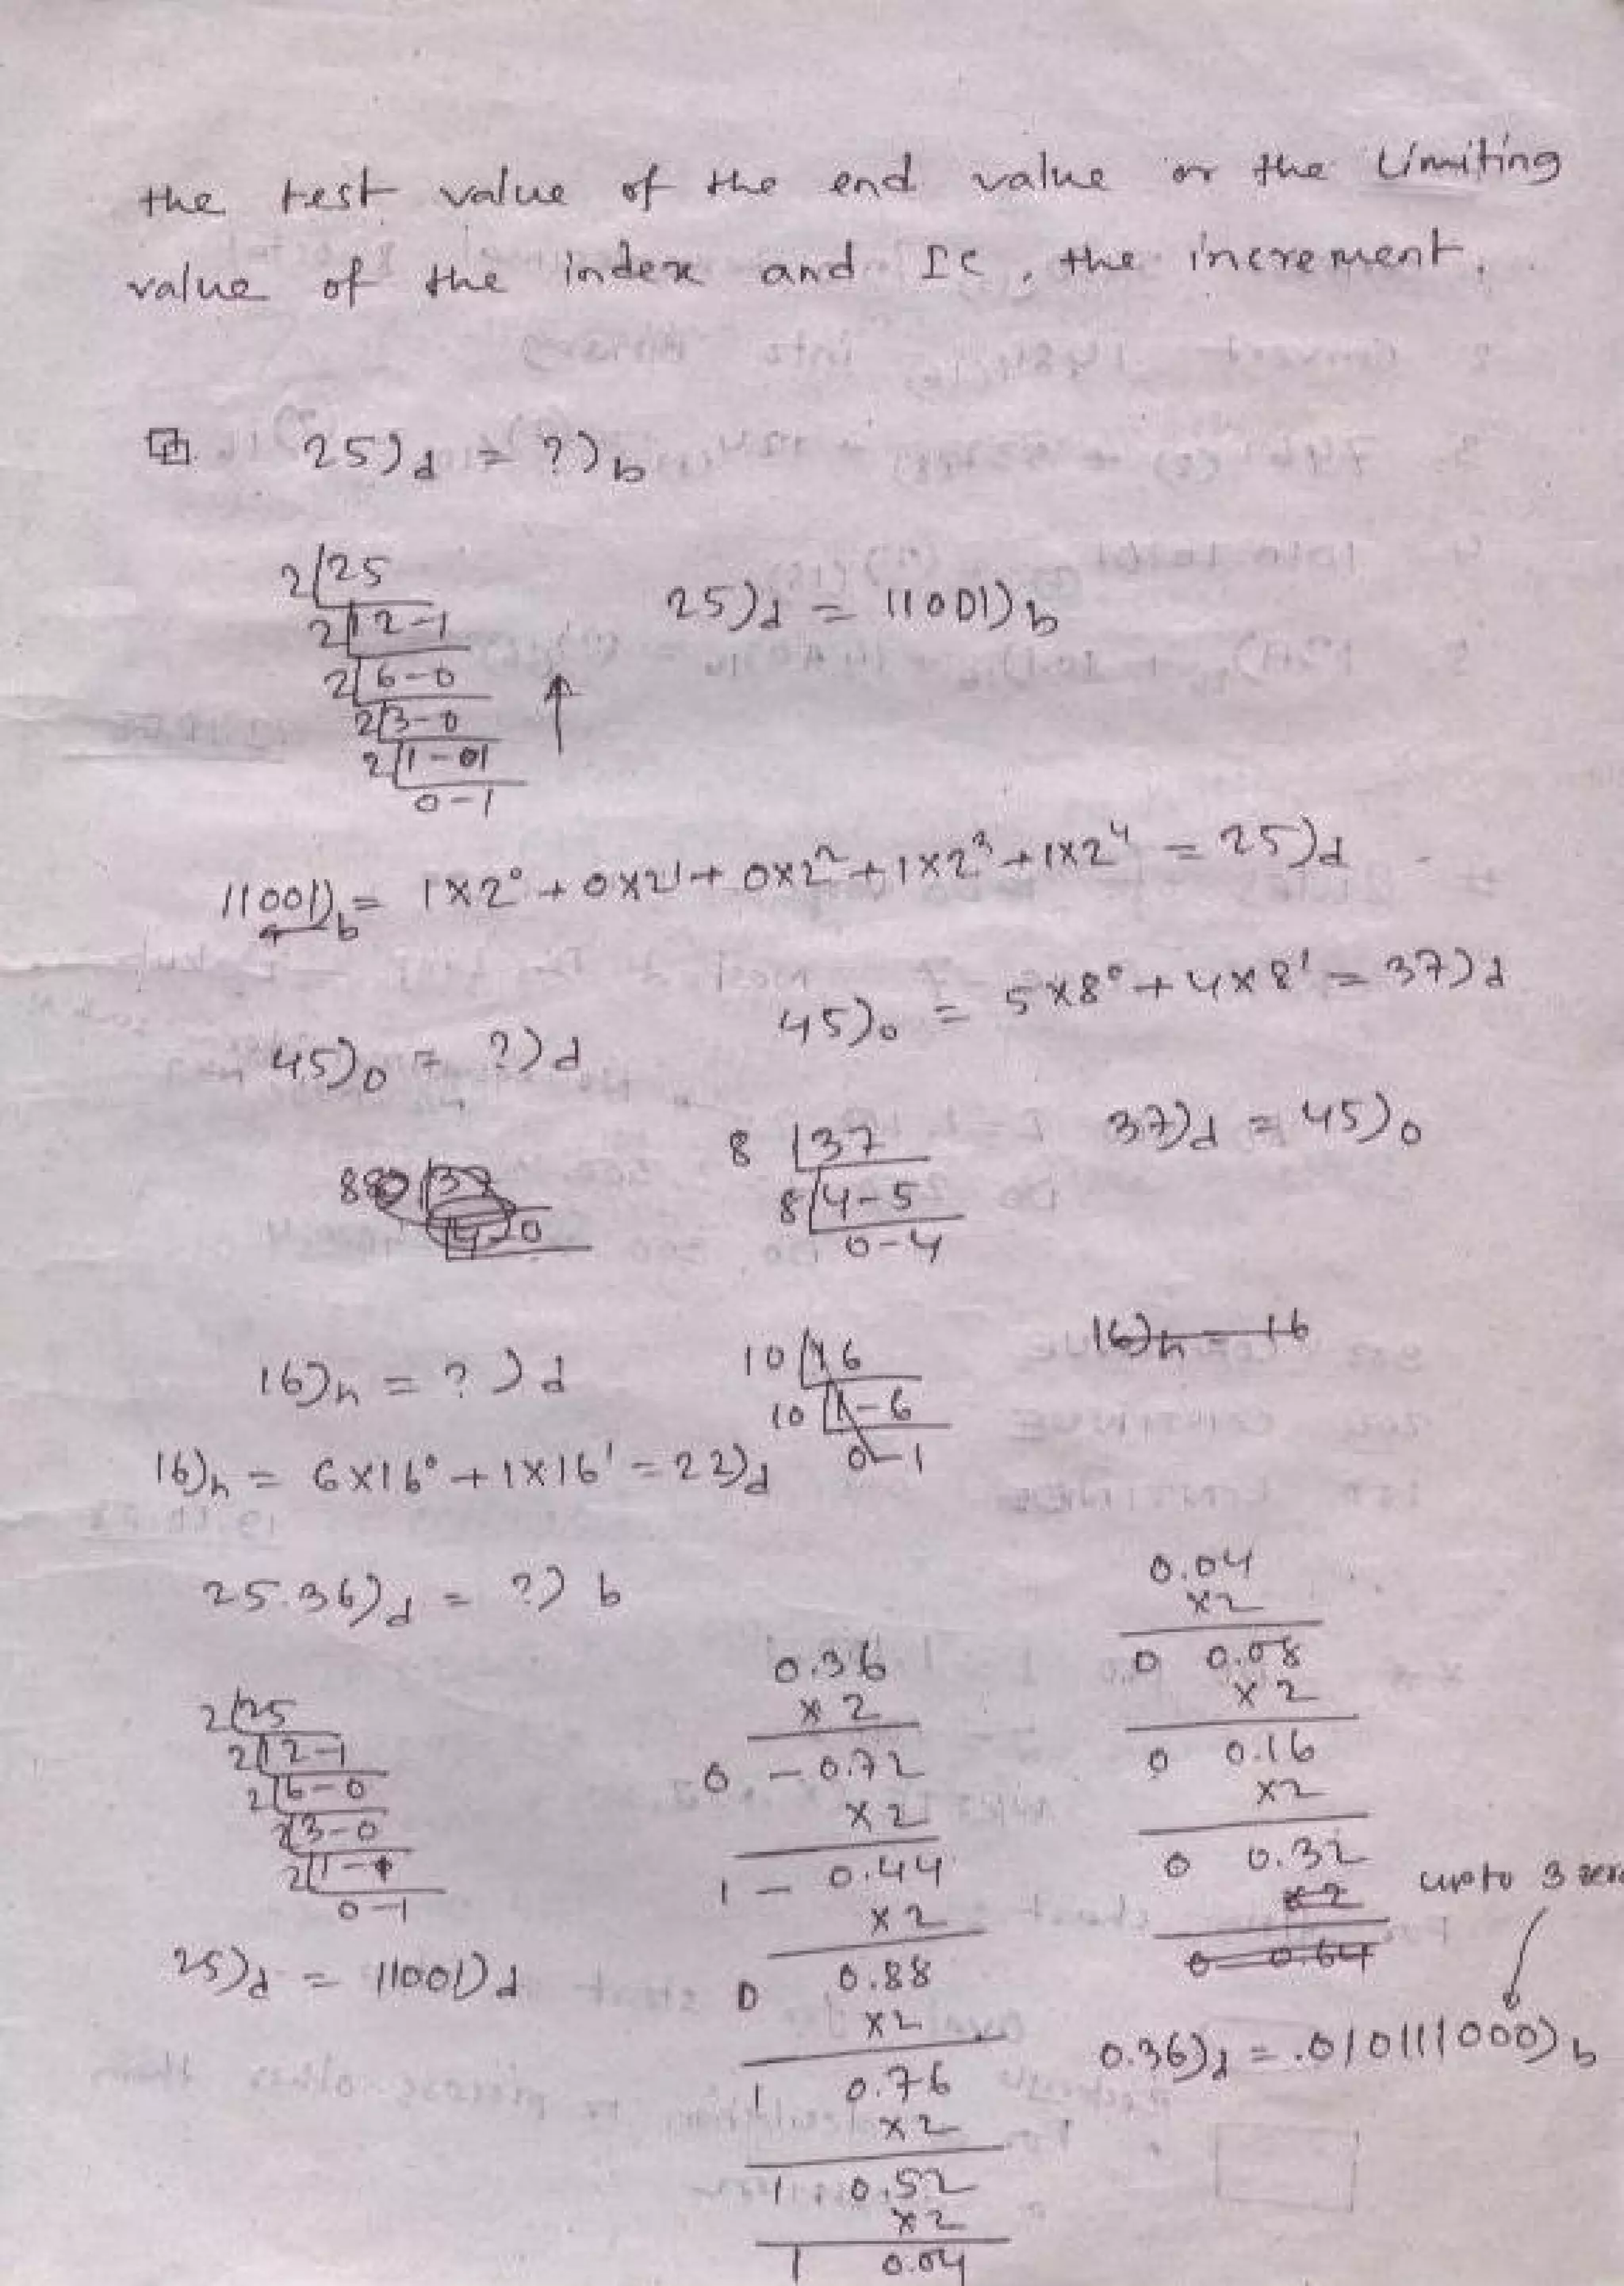 the test value of the end value or the Limiting
value of the index and IC, the increment.
25)d = ?)b
2|25
2|12-1
2|6-0
2|3-0
2|1-01
0-1
25)d = 11001)b
11001)b = 1×2⁰ + 0×2¹ + 0×2² + 1×2³ + 1×2⁴ = 25)d
45)o = ?)d
45)o = 5×8⁰ + 4×8¹ = 37)d
8|37
8|4-5
0-4
37)d = 45)o
16)h = ?)d
10|16
10|1-6
0-1
16)h = 16
16)h = 6×16⁰ + 1×16¹ = 22)d
25.36)d = ?)b
2|25
2|12-1
2|6-0
2|3-0
2|1-1
0-1
25)d = 11001)d
0.36
×2
0 - 0.72
×2
1 - 0.44
×2
0 0.88
×2
1 0.76
×2
1 0.52
×2
1 0.04
0.04
×2
0 0.08
×2
0 0.16
×2
0 0.32
×2
0 0.64
upto 3
0.36)d = .010111000)b